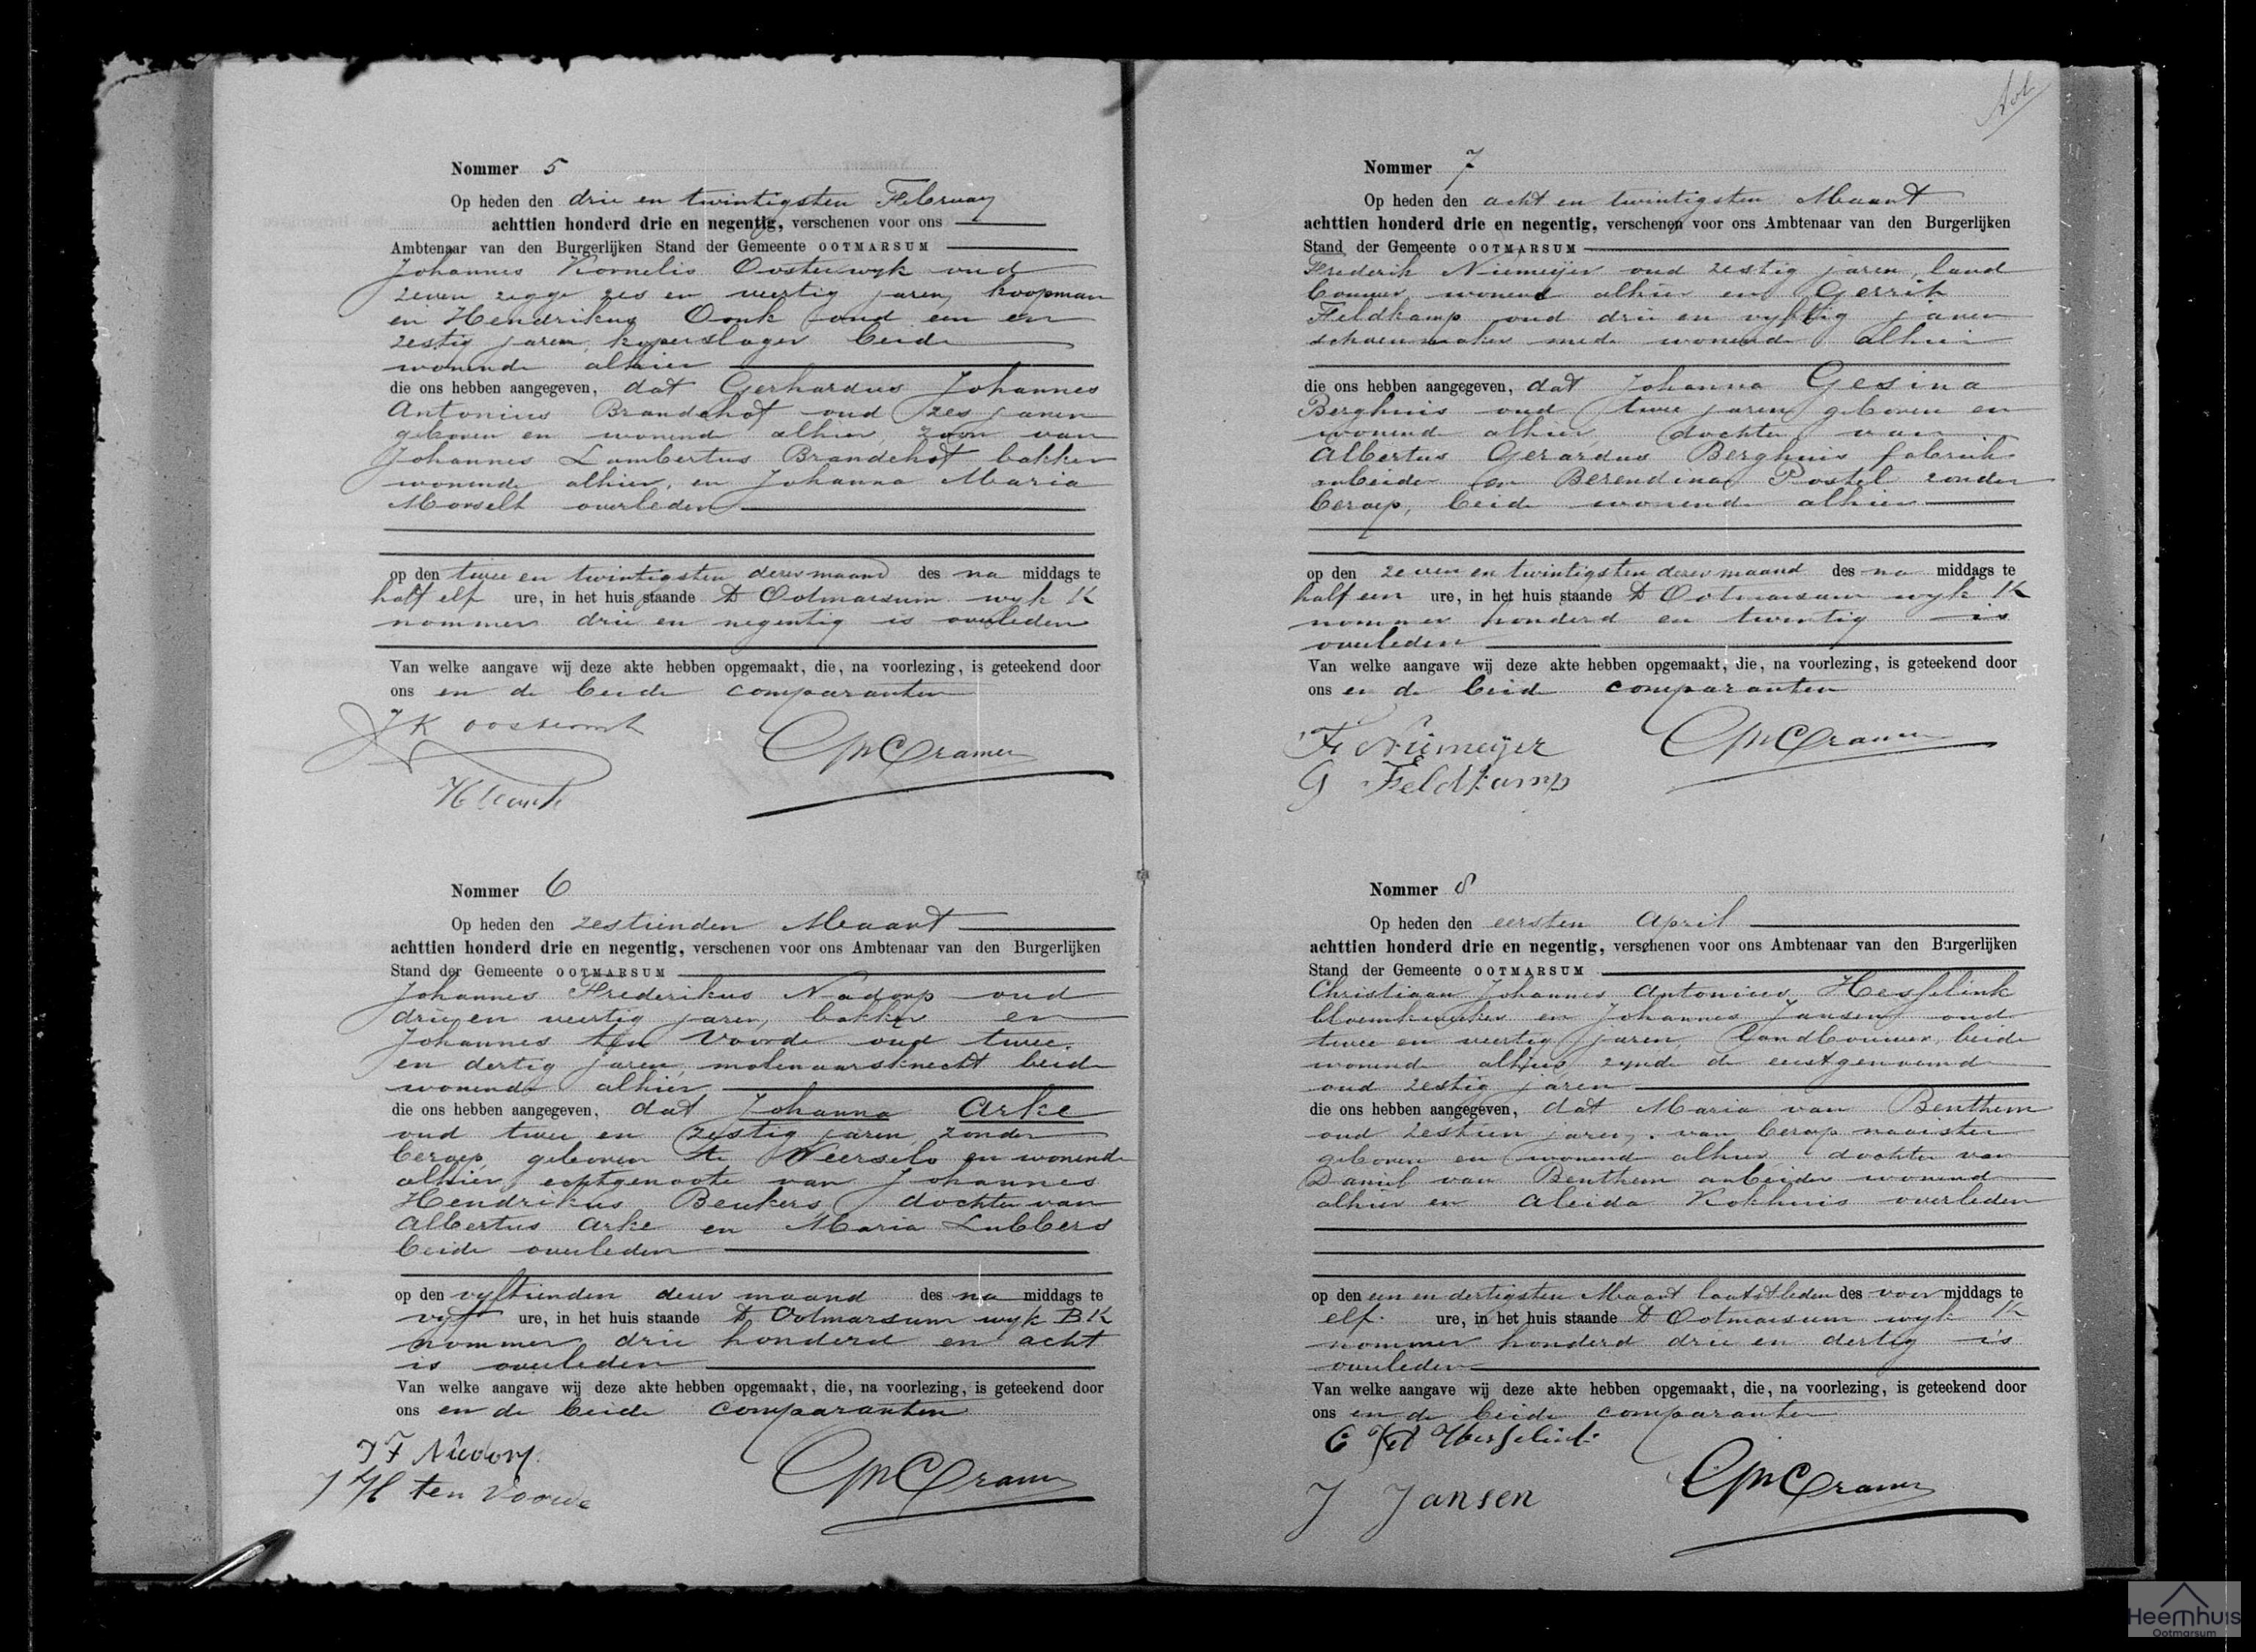 Nommer 5
Op heden den drie en twintigsten February
achttien honderd drie en negentig, verschenen voor ons
Ambtenaar van den Burgerlijken Stand der Gemeente OOTMARSUM
Johannes Kornelis Oosterwyk oud
zeven zegge zes en veertig jaren, koopman
en Hendrikus Oonk oud een en
zestig jaren, koperslager beide
wonende alhier
die ons hebben aangegeven, dat Gerhardus Johannes
Antonius Brandehof oud zes jaren
geboren en wonende alhier, zoon van
Johannes Lambertus Brandehof bakker
wonende alhier, en Johanna Maria
Morselt overleden
op den twee en twintigsten dezer maand des na middags te
half elf ure, in het huis staande te Ootmarsum wyk K
nommer drie en negentig is overleden
Van welke aangave wij deze akte hebben opgemaakt, die, na voorlezing, is geteekend door
ons en de beide comparanten
J K
Cramer
Nommer 6
Op heden den zestienden Maart
achttien honderd drie en negentig, verschenen voor ons Ambtenaar van den Burgerlijken
Stand der Gemeente OOTMARSUM
Johannes Frederikus Nadorp oud
drie en veertig jaren, bakker en
Johannes ten Voorde oud twee
en dertig jaren, molenaarsknecht beide
wonende alhier
die ons hebben aangegeven, dat Johanna Arke
oud twee en zestig jaren, zonder
beroep, geboren te Weerselo en wonende
alhier, echtgenoote van Johannes
Hendrikus Beukers, dochter van
Albertus Arke en Maria Lubbers
beide overleden
op den vyftienden dezer maand des na middags te
vyf ure, in het huis staande te Ootmarsum wyk B K
nommer drie honderd en acht
is overleden
Van welke aangave wij deze akte hebben opgemaakt, die, na voorlezing, is geteekend door
ons en de beide comparanten
J F Nadorp.
J H ten Voorde
Cramer
Nommer 7
Op heden den acht en twintigsten Maart
achttien honderd drie en negentig, verschenen voor ons Ambtenaar van den Burgerlijken
Stand der Gemeente OOTMARSUM
Frederik Niemeijer oud zestig jaren, land
bouwer wonend alhier en Gerrit
Feldkamp oud drie en vyftig jaren
schoenmaker mede wonende alhier
die ons hebben aangegeven, dat Johanna Gesina
Berghuis oud twee jaren geboren en
wonende alhier, dochter van
Albertus Gerardus Berghuis fabriek
arbeider en Berendina Postel zonder
beroep, beide wonende alhier
op den zeven en twintigsten dezer maand des na middags te
half een ure, in het huis staande te Ootmarsum wyk K
nommer honderd en twintig is
overleden
Van welke aangave wij deze akte hebben opgemaakt, die, na voorlezing, is geteekend door
ons en de beide comparanten
F Niemeijer
G Feldkamp
Cramer
Nommer 8
Op heden den eersten April
achttien honderd drie en negentig, verschenen voor ons Ambtenaar van den Burgerlijken
Stand der Gemeente OOTMARSUM
Christiaan Johannes Antonius Hesselink
bloemkweeker en Johannes Jansen oud
twee en veertig jaren, landbouwer, beide
wonende alhier, zynde de eerstgenoemde
oud zestig jaren
die ons hebben aangegeven, dat Maria van Benthem
oud zestien jaren, van beroep naaister
geboren en wonend alhier, dochter van
Daniel van Benthem arbeider wonend
alhier en Aleida Kokhuis overleden
op den een en dertigsten Maart laatstleden des voor middags te
elf ure, in het huis staande te Ootmarsum wyk K
nommer honderd drie en dertig is
overleden
Van welke aangave wij deze akte hebben opgemaakt, die, na voorlezing, is geteekend door
ons en de beide comparanten
Hesselink
J Jansen
Cramer
Heemhuis
Ootmarsum